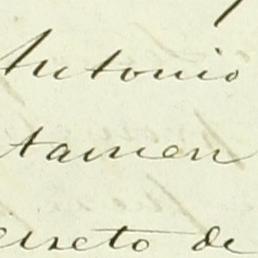 Antonio
tamen
creto de